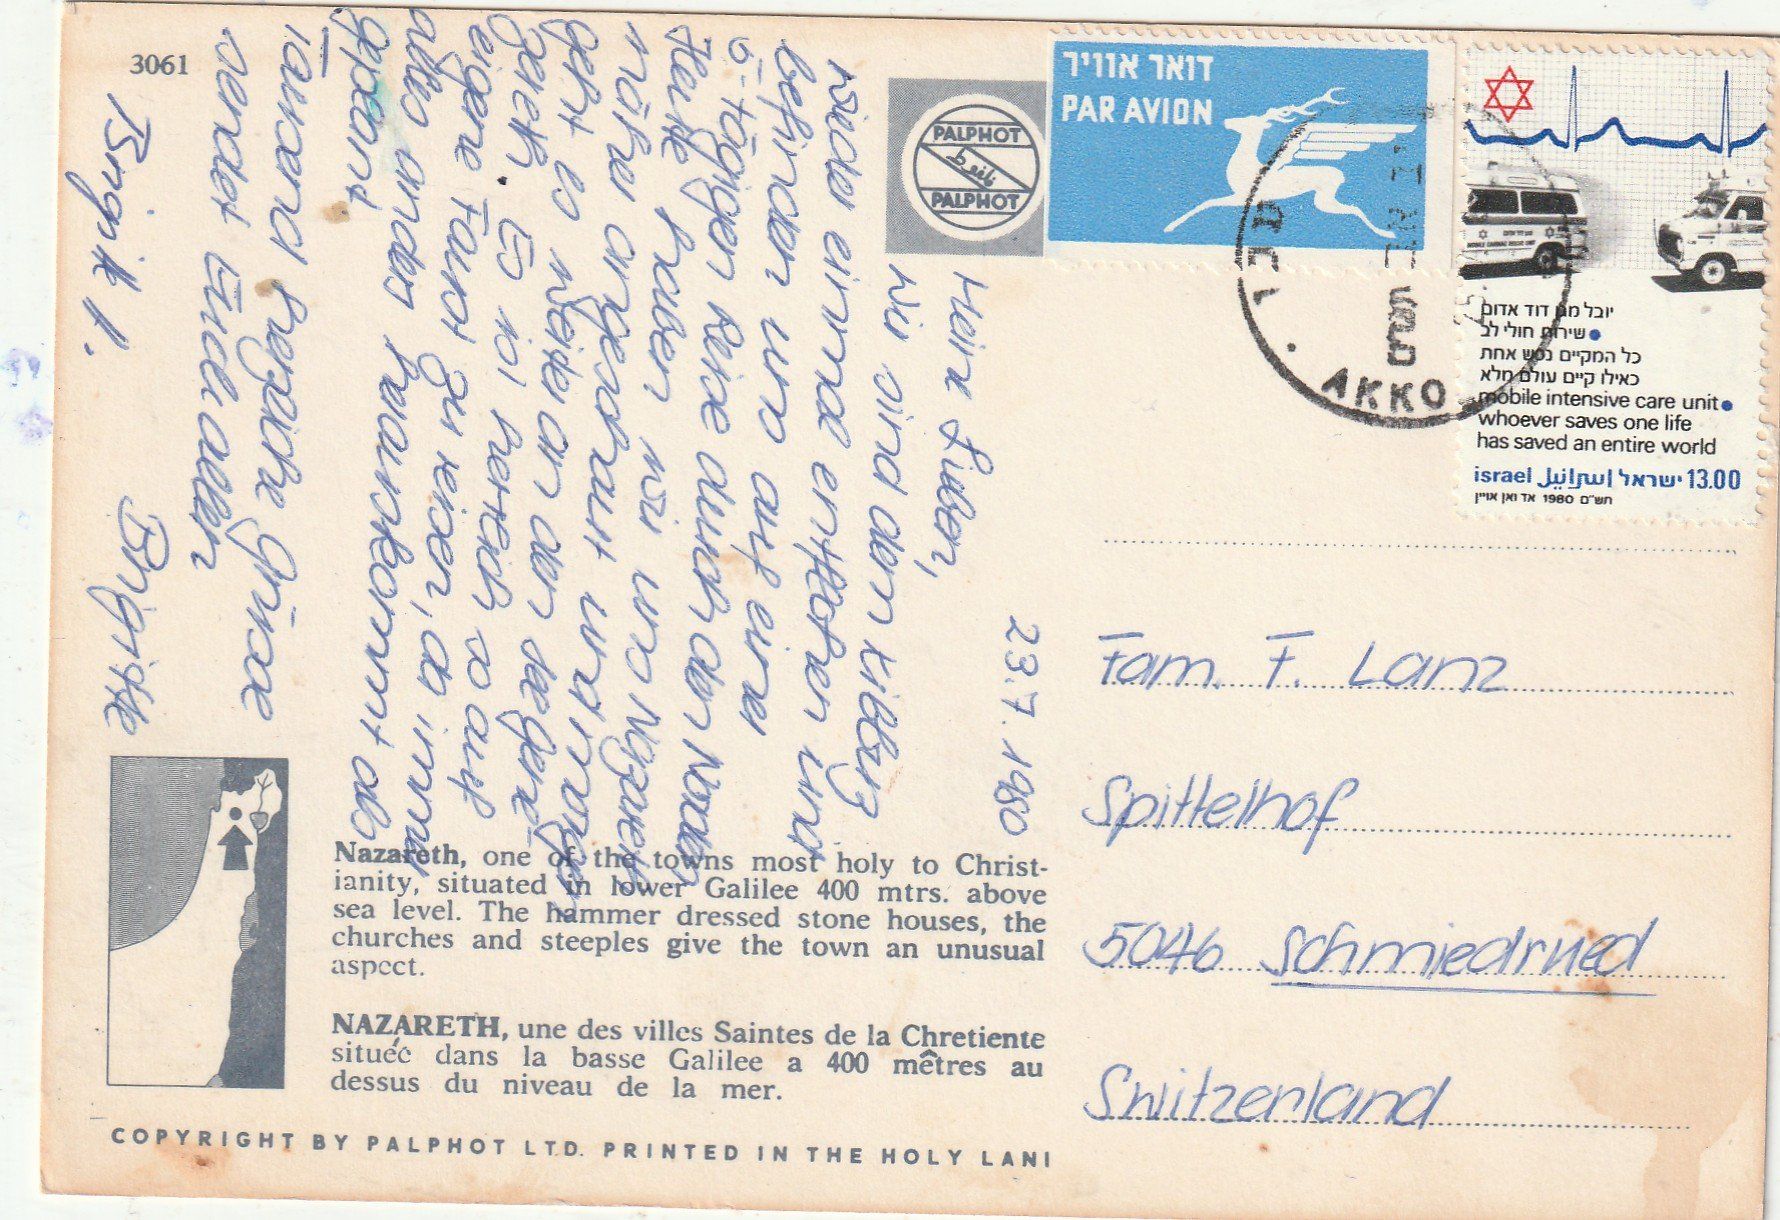 3061
PALPHOT
PALPHOT
דואר אוויר
PAR AVION
AKKO
יובל מגן דוד אדום
שירות חולי לב
כל המקיים נפש אחת
כאילו קיים עולם מלא
mobile intensive care unit
whoever saves one life
has saved an entire world
israel اسرائيل ישראל 13.00
תש"ם 1980 אד ואן אויין
23.7.1980
Meine Lieben,
Wir sind dem Kibbuz
wieder einmal entflohen und
befinden uns auf einer
5-tägigen Reise durch den Norden
Heute haben wir uns Nazareth
näher angeschaut und morgen
geht es weiter an den See Gene-
zareth. Es ist herrlich so auf
eigene Faust zu reisen, da immer
alles anders herauskommt als
geplant
Tausend herzliche Grüsse
sendet Euch allen
Brigitte
Birgit H.
Fam. F. Lanz
Spittelhof
5046 Schmiedrued
Switzerland
Nazareth, one of the towns most holy to Christ-
ianity, situated in lower Galilee 400 mtrs. above
sea level. The hammer dressed stone houses, the
churches and steeples give the town an unusual
aspect.
NAZARETH, une des villes Saintes de la Chretiente
situéé dans la basse Galilee a 400 mêtres au
dessus du niveau de la mer.
COPYRIGHT BY PALPHOT LTD. PRINTED IN THE HOLY LAN